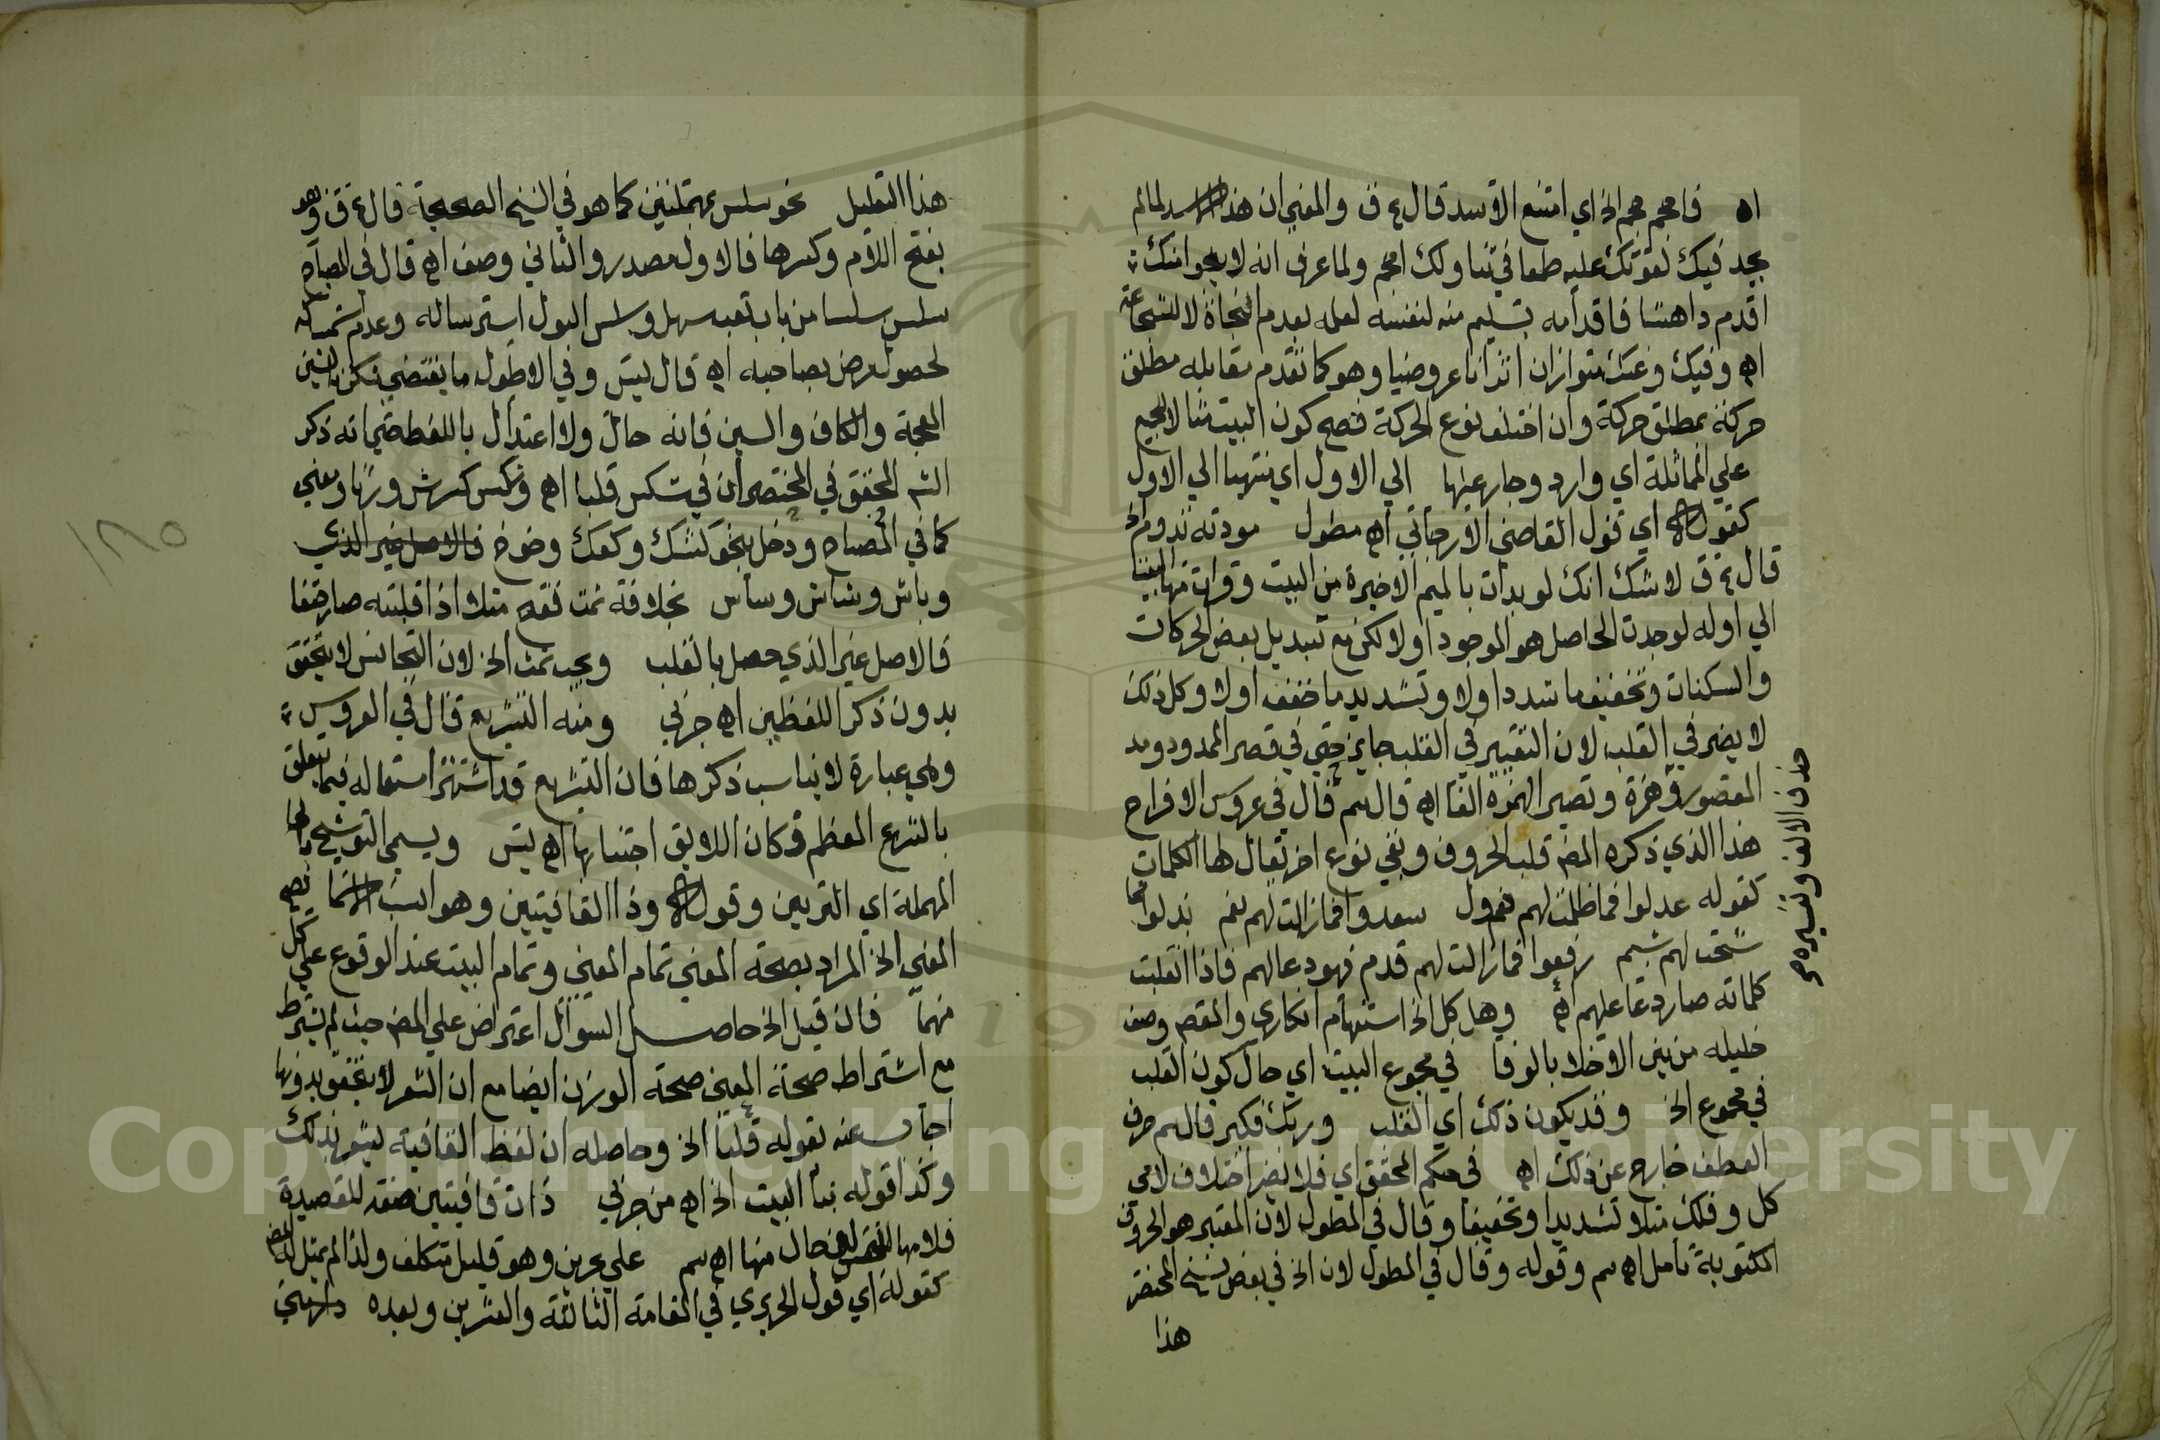 اه فاحجم محجم الخ اي امتنع الاسد قال ع ق والمعني ان هذا الاسد لما لم
يجد فيك لقوتك عليه طمعا في تناولك احجم ولما عرف انه لا ينجو منك
اقدم داهشا فاقدامه تسليم منه لنفسه لعله بعدم النجاة لا للشجاعة
اه وفيك وعنك متوازنان اتزانا عروضيا وهو كما تقدم مقابله مطلق
حركة بمطلق حركة وان اختلف نوع الحركة فصح كون البيت مثالا للجميع
علي المماثلة اي وارد وجار عليها الي الاول اي منتهيا الي الاول
كقوله اي قول القاضي الارجاني اه مطول مودته تدوم الخ
قال ع ق لا شك انك لو بدأت بالميم الاخيرة من البيت وقرأت منها البيت
الي اوله لوجدت الحاصل هو الموجود اولا لكن مع تبديل بعض الحركات
والسكنات وتخفيف ما شدد اولا وتشديد ما خفف اولا وكل ذلك
لا يضر في القلب لان التغيير في القلب جايز حتي في قصر الممدود ومد
المقصور وهمزة وتصير الهمزة الفا اه قال سم قال في عروس الافراح
هذا الذي ذكره المصـ قلب الحروف وبقي نوع اخر يقال لها الكلمات
كقوله عدلوا فما ظلمت لهم دول سعدوا فما زالت لهم نعم بذلوا فما
شحت لهم شيم رفعوا فما زالت لهم قدم فهو دعا لهم فاذا انقلبت
كلماته صار دعا عليهم اه وهل كل الخ استفهام انكاري والمقصـ وصف
خليله من بين الاخلا بالوفا في مجموع البيت اي حال كون القلب
في مجموع الخ وقد يكون ذلك اي القلب وربك فكبر قال سم حرف
العطف خارج عن ذلك اه في حكم المخفف اي فلا يضر اختلاف لامي
كل وفلك مثلا تشديدا وتخفيفا وقال في المطول لان المعتبر هو الحروف
المكتوبة تأمل اه سم وقوله وقال في المطول لان الخ في بعض نسخ المختصر
هذا
حذف الالف وتسيره صح
هذا التعليل نحو سلس بمهملتين كما هو في النسخ الصحيحة قال ع ق وهو
بفتح اللام وكسرها فالاول مصدر والثاني وصف اه قال في المصباح
سلس سلسا من باب تعب سهل وسلس البول استرساله وعدم استمساكه
لحصول مرض بصاحبه اه قال يس وفي الاطول ما يقتضي شكس بالشين
المعجمة والكاف والسين فانه حال ولا اعتدال باللفظ حتي انه ذكر
الشـ المحقق في المختصر ان في شكس قلبا اه وشكس كشرس وزنا ومعني
كما في المصباح ودخل بنحو كشك وكعك وخوخ فالاصل غير الذي
وباش وشاش وساس بخلافه ثمت فقح مثلا اذا قلبته صار حتفا
فالاصل غير الذي حصل بالقلب ويجب ثمت الخ لان التجانس لا يتحقق
بدون ذكر اللفظين اه حربي ومنه التشريع قال في العروس
وهي عبارة لا يناسب ذكرها فان التشريع قد اشتهر استعماله فيما يتعلق
بالشرع المعظم وكان اللايق اجتنابها اه يس ويسمي التوشيح بالحا
المهملة اي التزيين وقوله وذا القافيتين وهو انسب الاسما يصح
المعني الخ المراد بصحة المعني تمام المعني وتمام البيت عند الوقوع علي كل
منهما فان قيل الخ حاصل السوال اعتراض علي المصـ حيث لم يشترط
مع اشتراط صحة المعني صحة الوزن ايضا مع ان الشعر لا يتحقق بدونها
اجاب عنه بقوله قلنا الخ وحاصله ان لفظ القافية يشعر بذلك
وكذا قوله بنا البيت الخ اه من حربي ذات قافيتين صفة للقصيدة
فلامها للجنس او حال منها اه سم علي عربن وهو قليل متكلف ولذا لم يمثل له المصـ
كقوله اي قول الحريري في المقامة الثالثة والعشرين وبعده دار متي
١٨٥
1957
Copyright © King Saud University